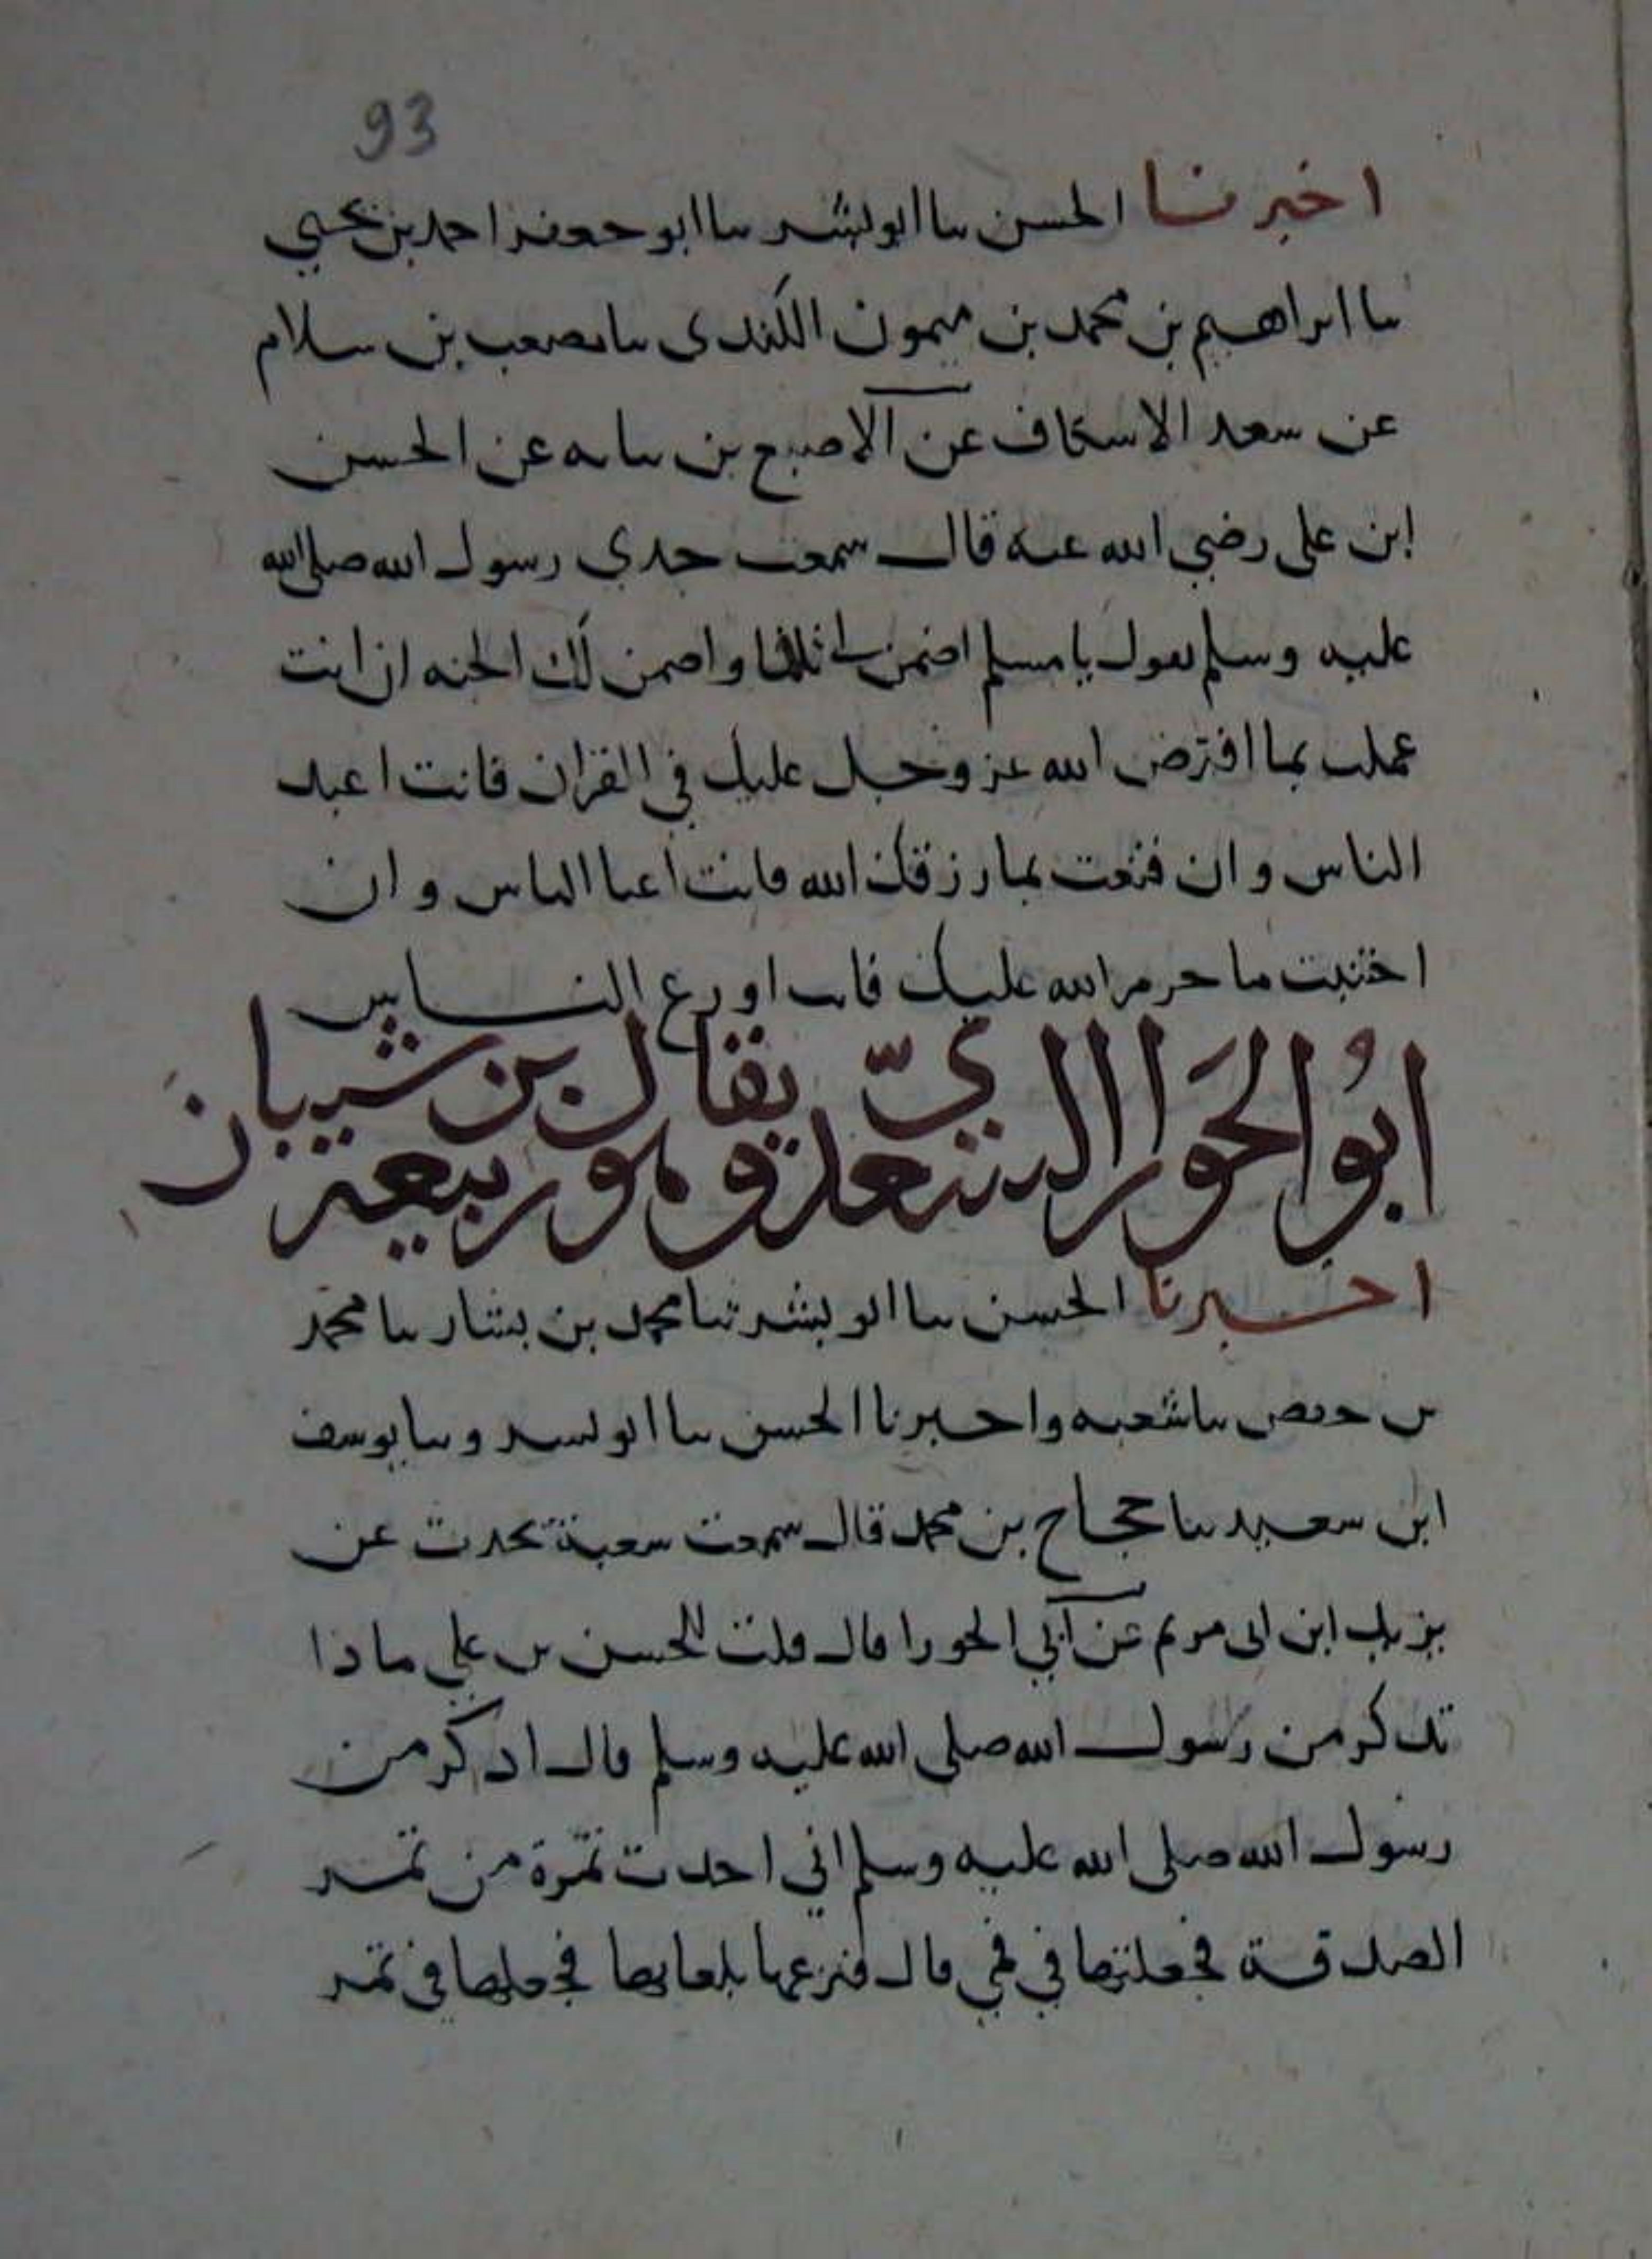 93
اخبرنا الحسن ثنا ابو بشر ثنا ابو جعفر احمد بن يحيى
ثنا ابراهيم بن محمد بن ميمون الكندي ثنا مصعب بن سلام
عن سعد الاسكاف عن الاصبع بن نباته عن الحسن
ابن على رضي الله عنه قال سمعت جدي رسول الله صلى الله
عليه وسلم يقول يا مسلم اضمن لي ثلاثا واضمن لك الجنه ان انت
عملت بما افترض الله عز وجل عليك في القران فانت اعبد
الناس وان قنعت بما رزقك الله فانت اغنا الناس وان
اجتنبت ما حرم الله عليك فانت اورع النــاس
ابو الحورا السعدي يقال بن شيبان
وهو ربيعة
اخبرنا الحسن ثنا ابو بشر ثنا محمد بن بشار ثنا محمد
بن جعفر ثنا شعبه واخبرنا الحسن ثنا ابو بشر وثنا يوسف
ابن سعيد ثنا حجاج بن محمد قال سمعت شعبة يحدث عن
بزيد ابن ابى مريم عن ابي الحورا قال قلت للحسن بن علي ماذا
تذكر من رسول الله صلى الله عليه وسلم قال اذكر من
رسول الله صلى الله عليه وسلم اني اخذت تمرة من تمر
الصدقة فجعلتها في فمي قال فنزعها بلعابها فجعلها في تمر